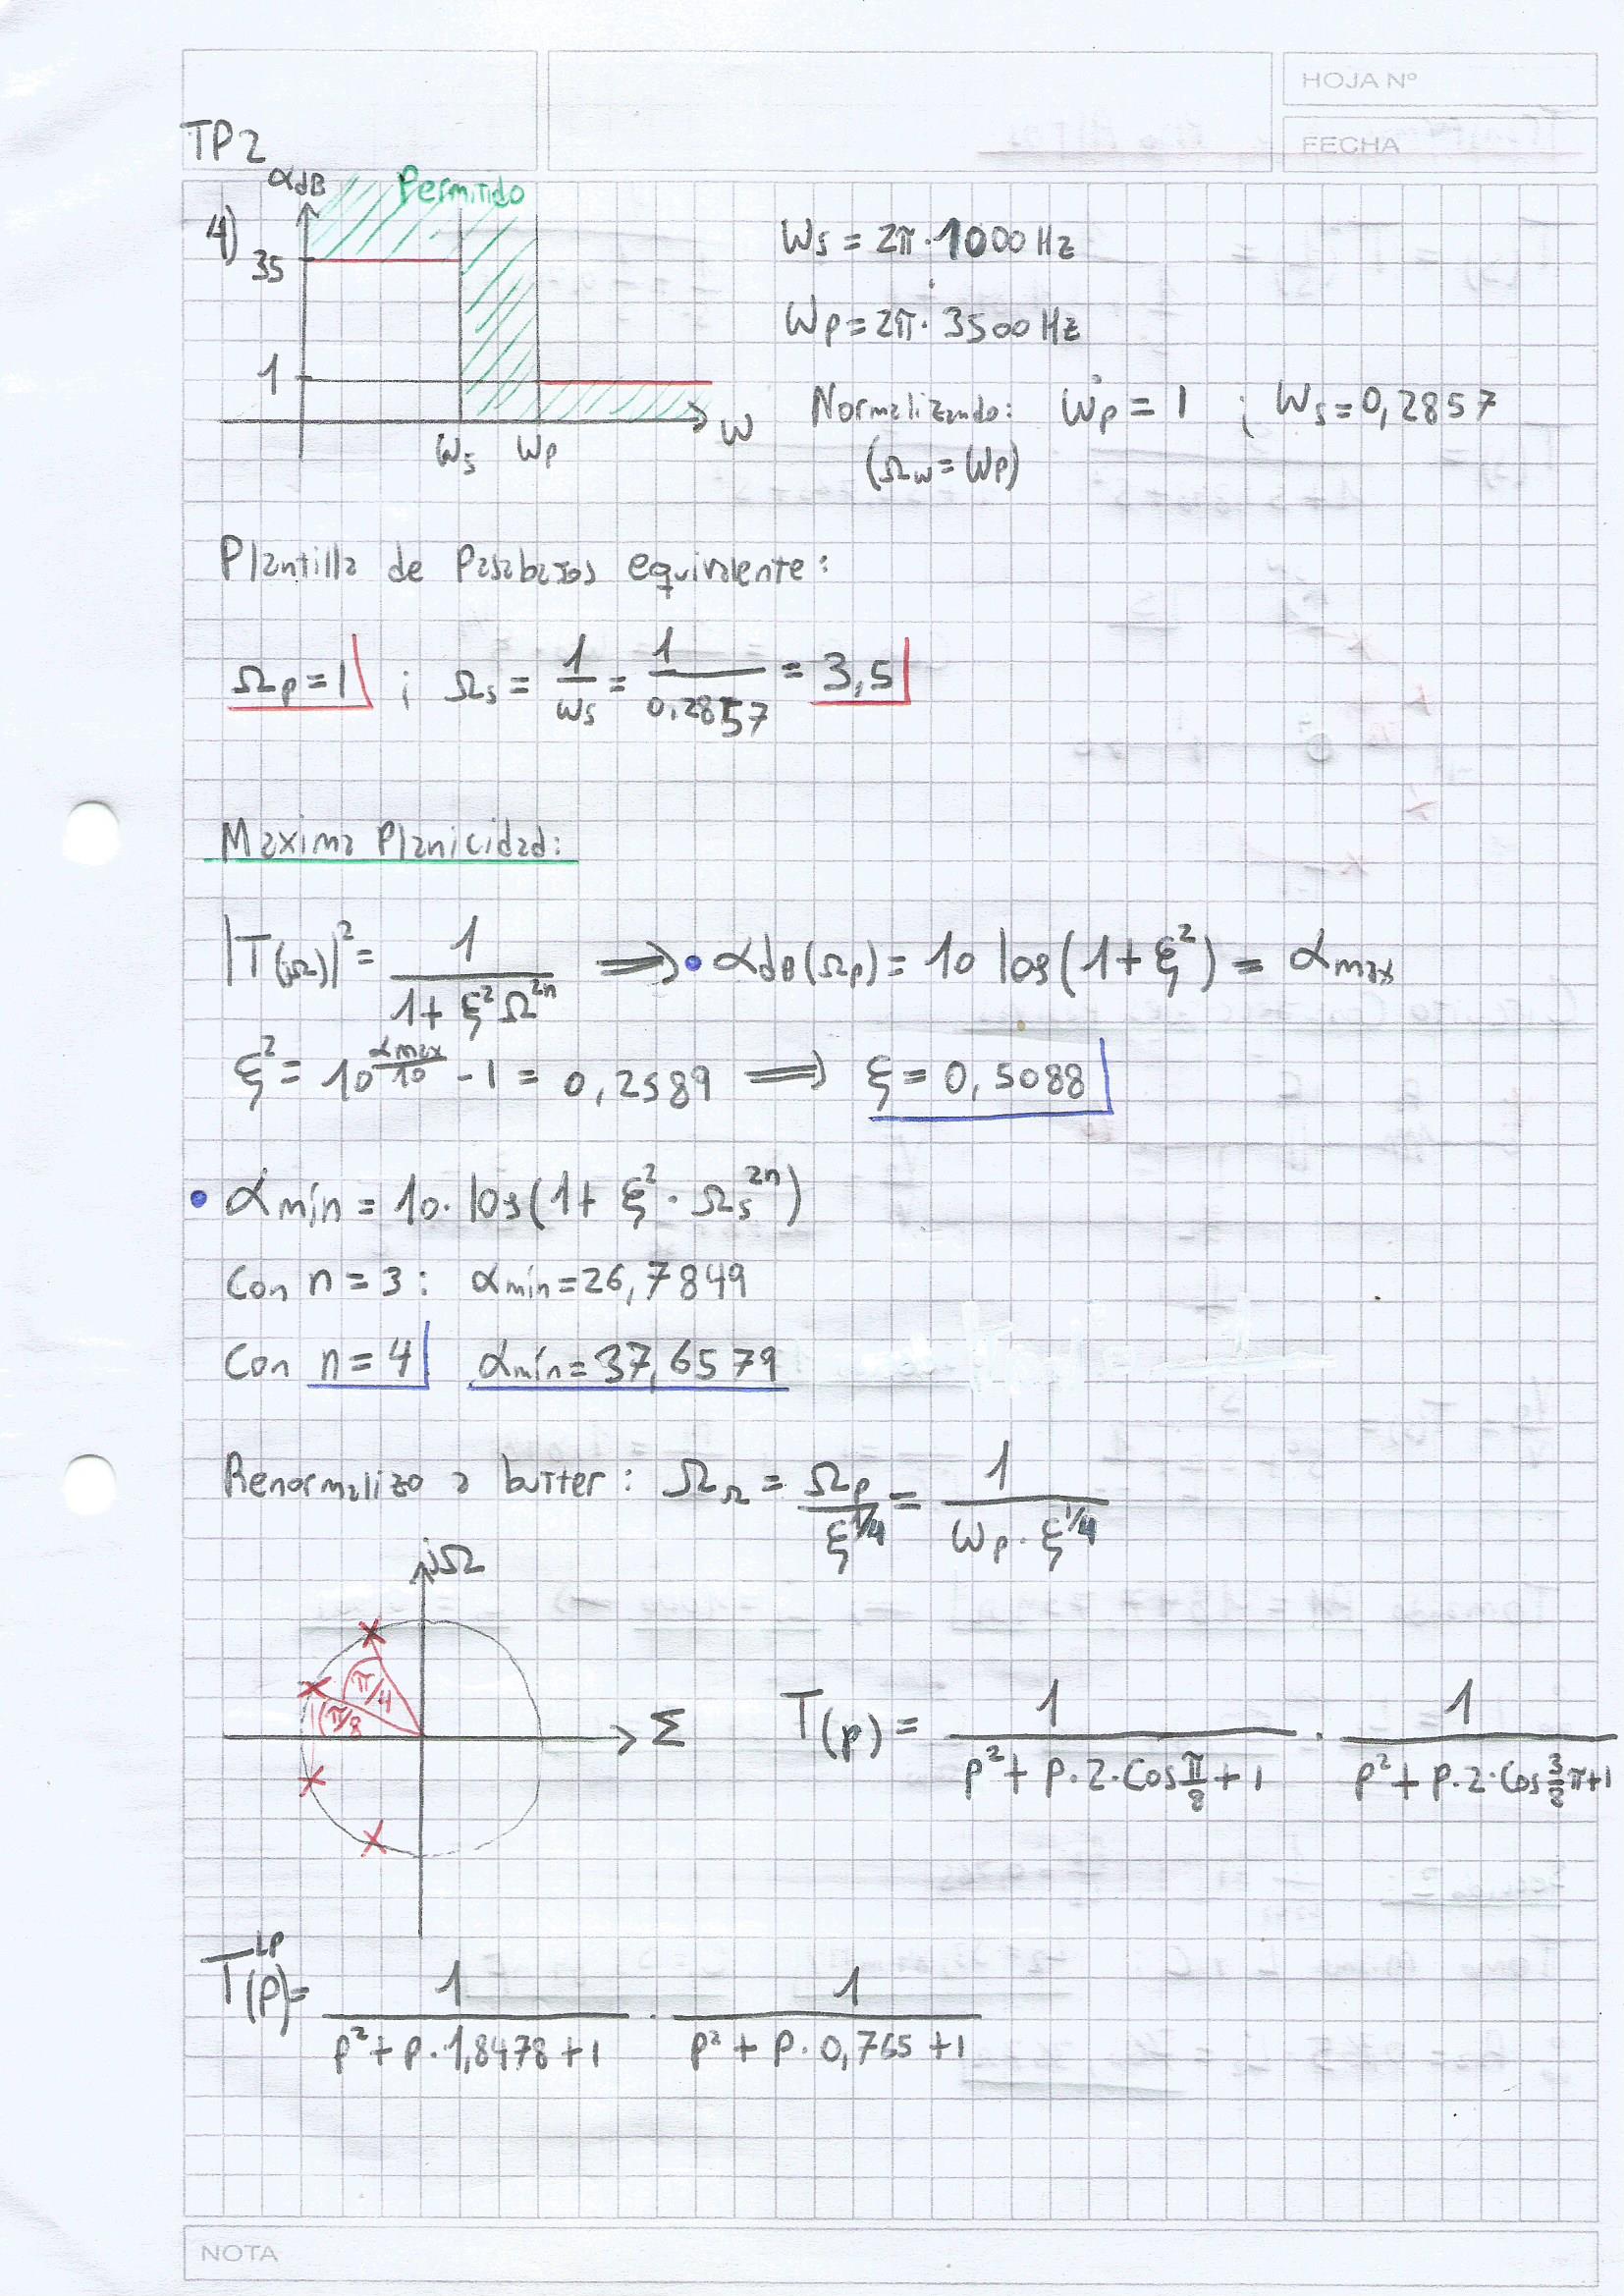 HOJA Nº
FECHA
TP2
αdB Permitido
4)
35
1
ωs ωp ω
ωs = 2π·1000 Hz
ωp = 2π·3500 Hz
Normalizando: ωp = 1 ; ωs = 0,2857
(Ωω = ωp)
Plantilla de Pasabajos equivalente:
Ωp = 1 ; Ωs = 1/ωs = 1/0,2857 = 3,5
Maxima Planicidad:
|T(jΩ)|² = 1/(1 + ξ²Ω²ⁿ) ⟹ • αdB(Ωp) = 10 log(1 + ξ²) = αmax
ξ² = 10^(αmax/10) - 1 = 0,2589 ⟹ ξ = 0,5088
• αmín = 10·log(1 + ξ²·Ωs²ⁿ)
Con n = 3: αmín = 26,7849
Con n = 4 αmín = 37,6579
Renormalizo a butter: ΩΩ = Ωp/ξ^(1/4) = 1/(ωp·ξ^(1/4))
jΩ
π/4
π/8
Σ
T(p) = 1/(p² + p·2·Cos π/8 + 1) · 1/(p² + p·2·Cos 3/8 π + 1)
T^LP(p) = 1/(p² + p·1,8478 + 1) · 1/(p² + p·0,765 + 1)
NOTA